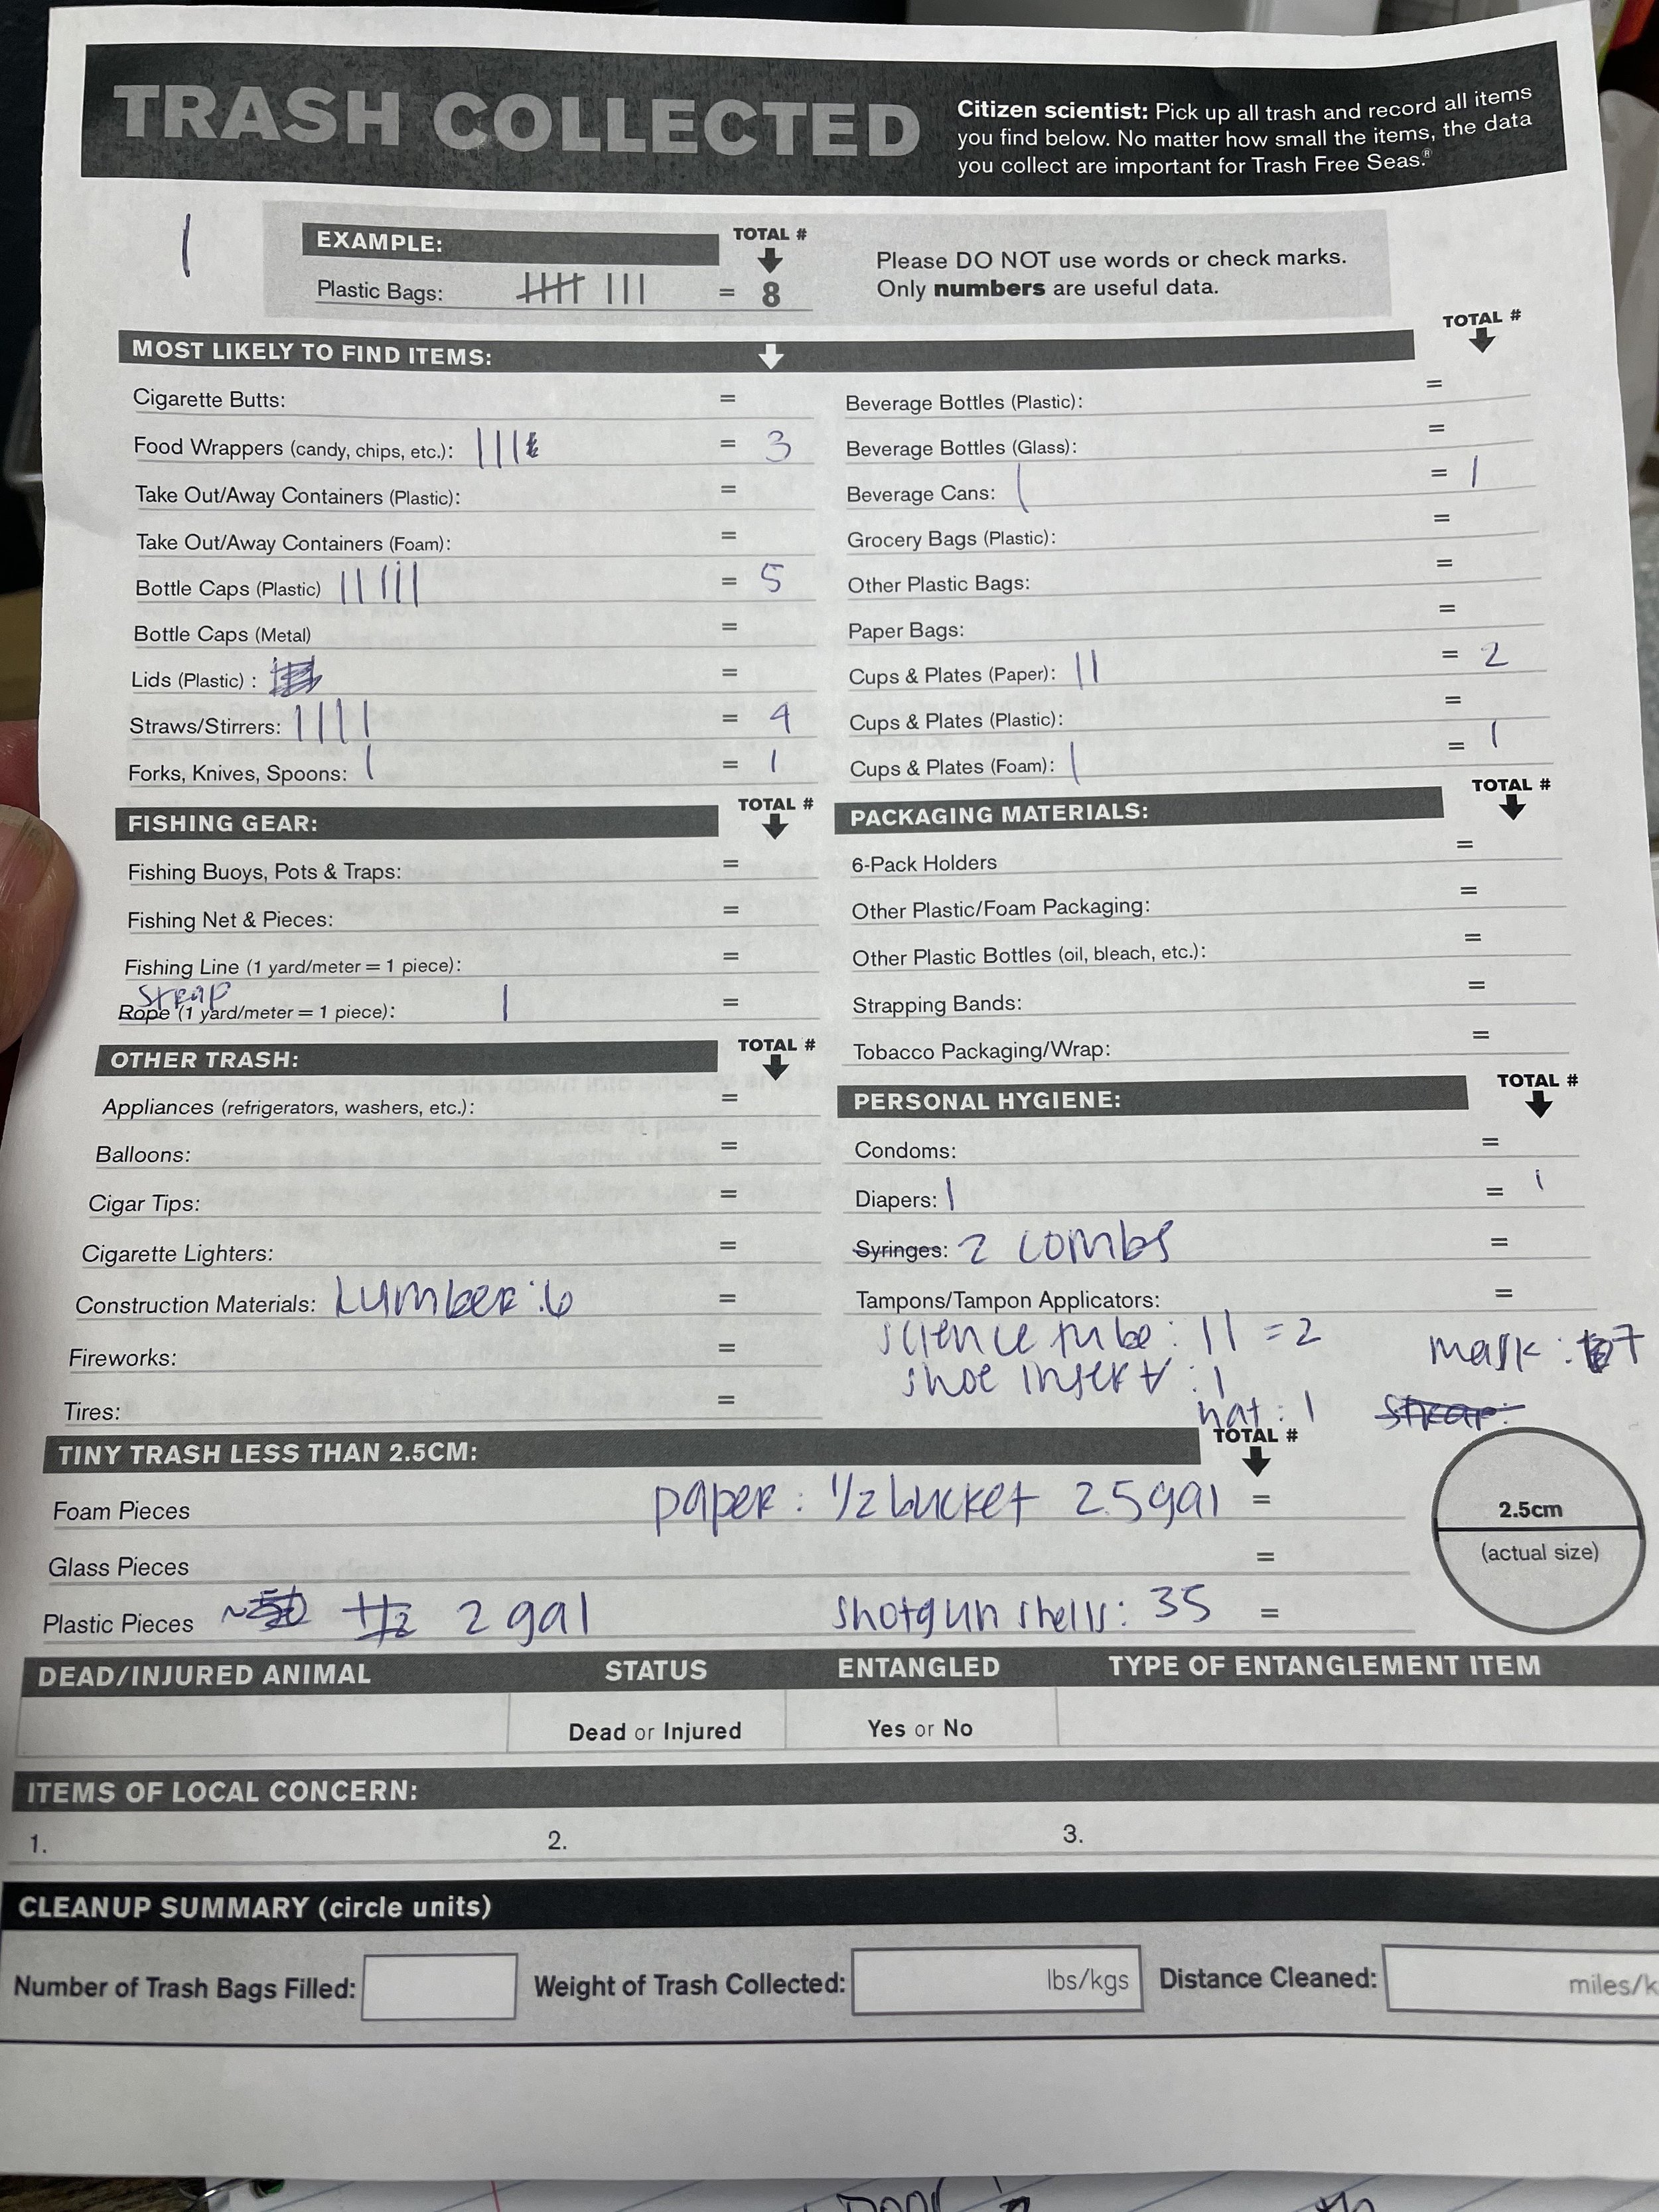 TRASH COLLECTED
Citizen scientist: Pick up all trash and record all items
you find below. No matter how small the items, the data
you collect are important for Trash Free Seas.®
1
EXAMPLE:
TOTAL #
Plastic Bags: = 8
Please DO NOT use words or check marks.
Only numbers are useful data.
MOST LIKELY TO FIND ITEMS:
TOTAL #
Cigarette Butts: =
Food Wrappers (candy, chips, etc.): ||| = 3
Take Out/Away Containers (Plastic): =
Take Out/Away Containers (Foam): =
Bottle Caps (Plastic) ||||| = 5
Bottle Caps (Metal) =
Lids (Plastic) : =
Straws/Stirrers: |||| = 4
Forks, Knives, Spoons: | = 1
Beverage Bottles (Plastic): =
Beverage Bottles (Glass): =
Beverage Cans: | = 1
Grocery Bags (Plastic): =
Other Plastic Bags: =
Paper Bags: =
Cups & Plates (Paper): || = 2
Cups & Plates (Plastic): =
Cups & Plates (Foam): | = 1
FISHING GEAR:
TOTAL #
Fishing Buoys, Pots & Traps: =
Fishing Net & Pieces: =
Fishing Line (1 yard/meter = 1 piece): =
Strap
Rope (1 yard/meter = 1 piece): | =
PACKAGING MATERIALS:
TOTAL #
6-Pack Holders =
Other Plastic/Foam Packaging: =
Other Plastic Bottles (oil, bleach, etc.): =
Strapping Bands: =
Tobacco Packaging/Wrap: =
OTHER TRASH:
TOTAL #
Appliances (refrigerators, washers, etc.): =
Balloons: =
Cigar Tips: =
Cigarette Lighters: =
Construction Materials: Lumber: 6 =
Fireworks: =
Tires: =
PERSONAL HYGIENE:
TOTAL #
Condoms: =
Diapers: | = 1
Syringes: 2 combs =
Tampons/Tampon Applicators: =
science tube: || = 2
mask: 7
shoe insert: 1
hat: 1
strap:
TINY TRASH LESS THAN 2.5CM:
TOTAL #
Foam Pieces paper: 1/2 bucket 2.5gal =
Glass Pieces =
Plastic Pieces 2 gal shotgun shells: 35 =
2.5cm
(actual size)
DEAD/INJURED ANIMAL STATUS ENTANGLED TYPE OF ENTANGLEMENT ITEM
Dead or Injured Yes or No
ITEMS OF LOCAL CONCERN:
1. 2. 3.
CLEANUP SUMMARY (circle units)
Number of Trash Bags Filled: Weight of Trash Collected: lbs/kgs Distance Cleaned: miles/k